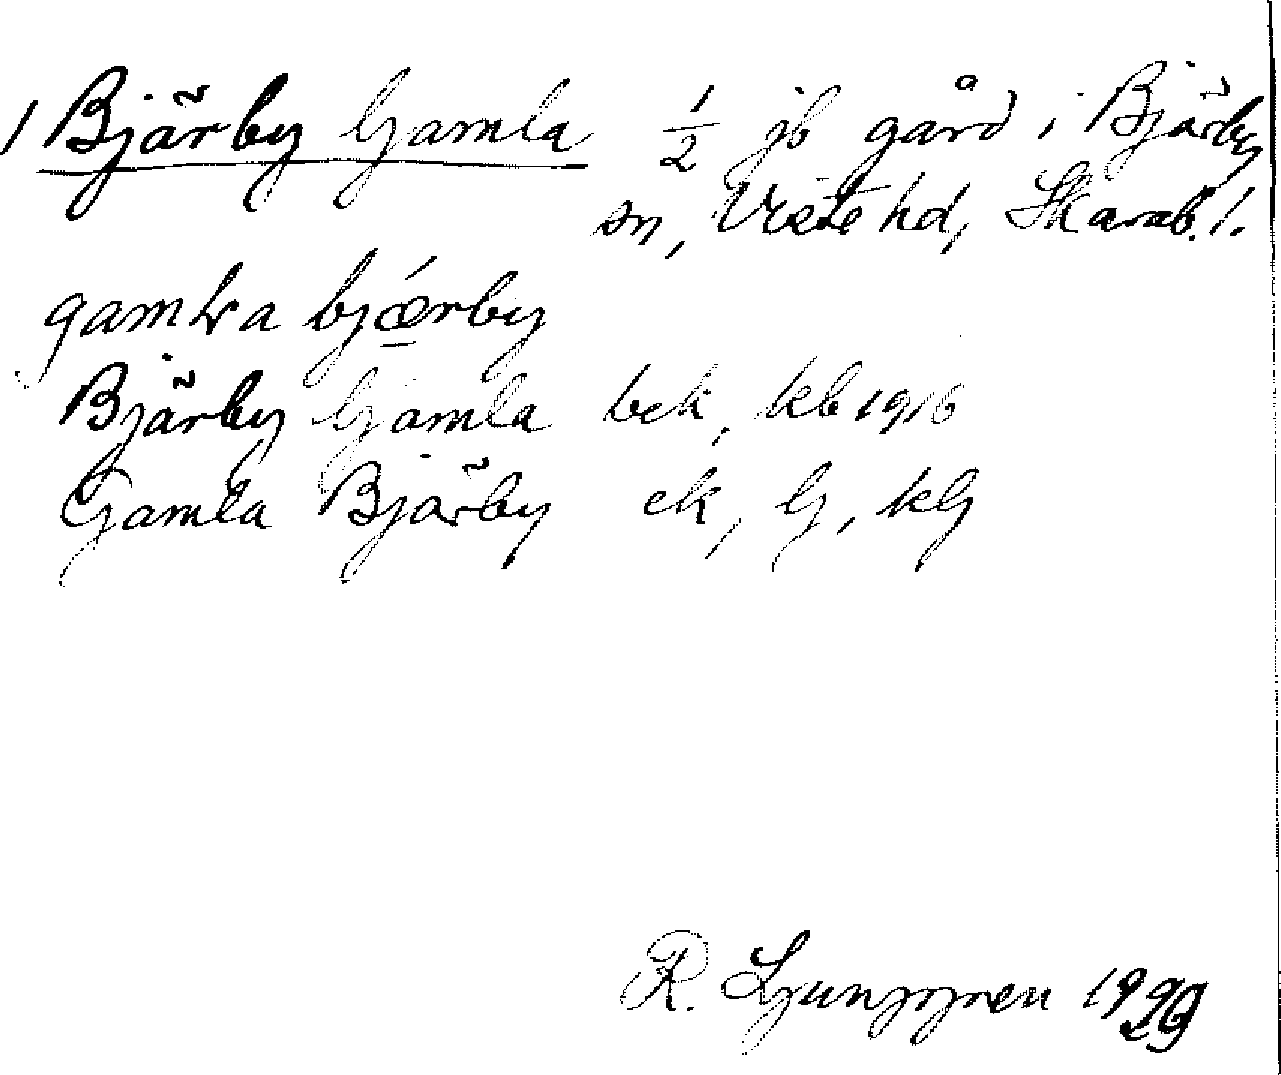 1 Bjärby Gamla ½ jb gård i Bjärby
sn, Viste hd, Skarab. l.
bjǽrby
Bjärby Gamla bek, kb 1916
Gamla Bjärby ek, G, kG
R. Ljunggren 1929